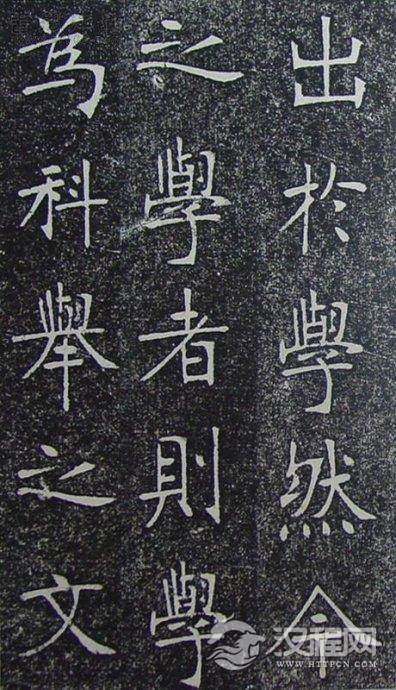 出於學然今
之學者則學
為科舉之文
汉程网
WWW.HTTPCN.COM